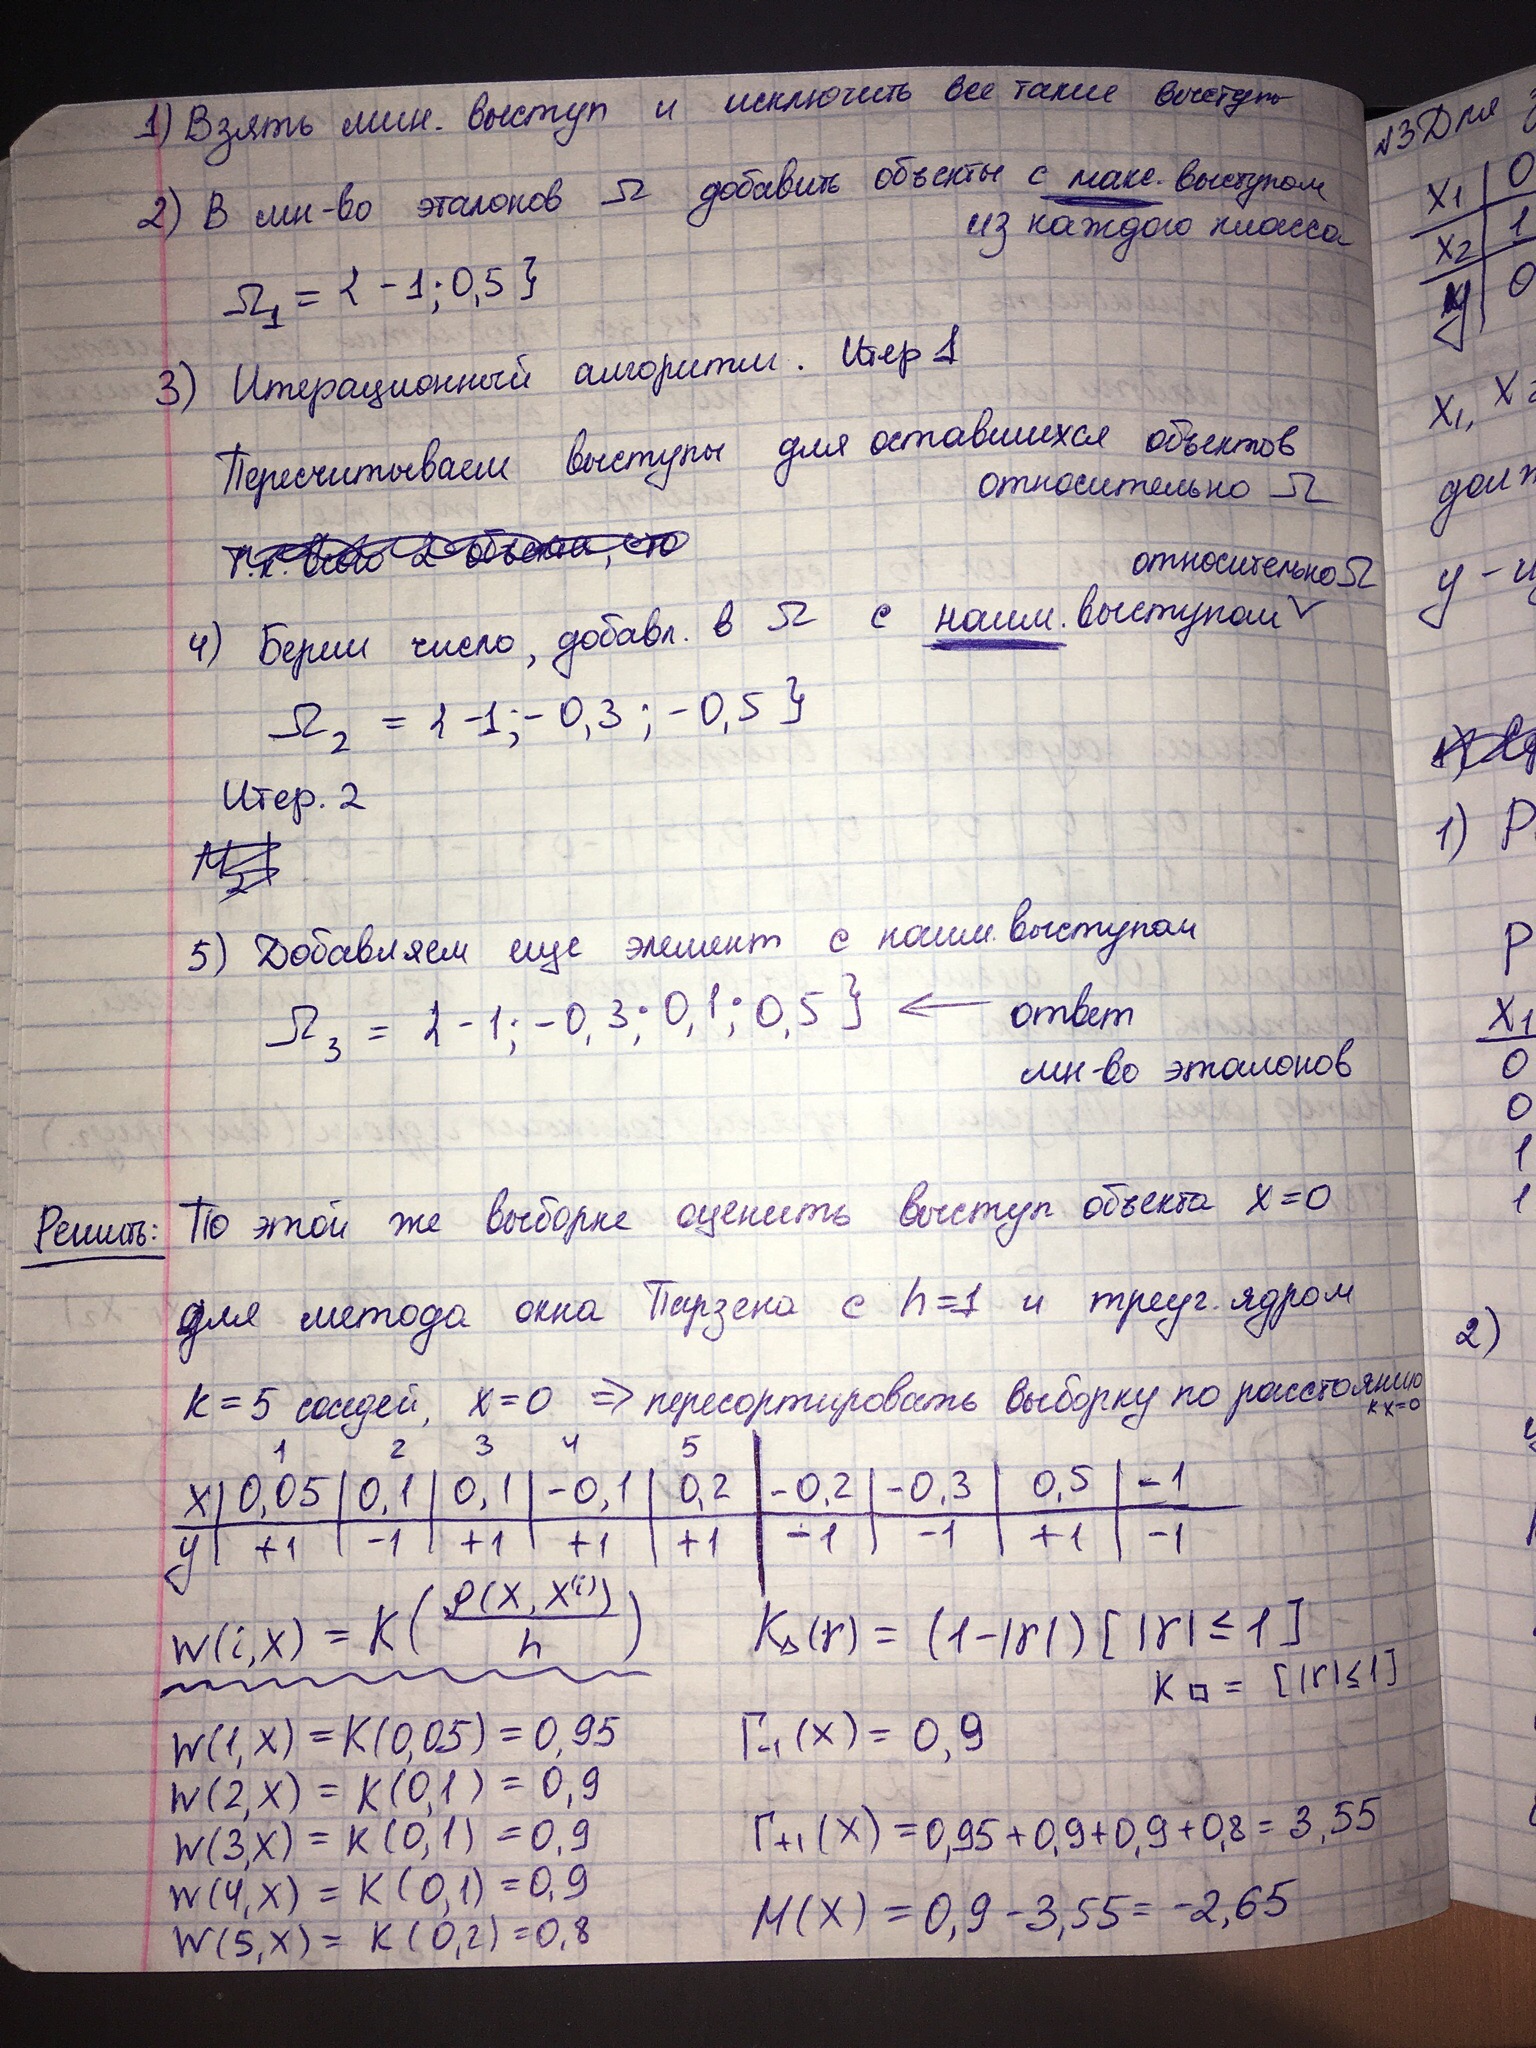 1) Взять мин. выступ и исключить все такие выступы
2) В мн-во эталонов Ω добавить объекты с макс. выступом
из каждого класса
Ω₁ = { -1; 0,5 }
3) Итерационный алгоритм. Итер 1
Пересчитываем выступы для оставшихся объектов
относительно Ω
относительно Ω
4) Берем число, добавл. в Ω с наим. выступом
Ω₂ = { -1; -0,3; -0,5 }
Итер. 2
5) Добавляем еще элемент с наим. выступом
Ω₃ = { -1; -0,3; 0,1; 0,5 } ← ответ
мн-во эталонов
Решить: По этой же выборке оценить выступ объекта x=0
для метода окна Парзена с h=1 и треуг. ядром
k=5 соседей, x=0 ⇒ пересортировать выборку по расстоянию
к x=0
1 2 3 4 5
x | 0,05 | 0,1 | 0,1 | -0,1 | 0,2 | -0,2 | -0,3 | 0,5 | -1
y | +1 | -1 | +1 | +1 | +1 | -1 | -1 | +1 | -1
W(i,x) = K(ρ(x,x⁽ⁱ⁾)/h) K△(r) = (1-|r|) [|r| ≤ 1]
K□ = [|r|≤1]
W(1,x) = K(0,05) = 0,95 Г₋₁(x) = 0,9
W(2,x) = K(0,1) = 0,9
W(3,x) = K(0,1) = 0,9 Г₊₁(x) = 0,95+0,9+0,9+0,8 = 3,55
W(4,x) = K(0,1) = 0,9
W(5,x) = K(0,2) = 0,8 M(x) = 0,9 - 3,55 = -2,65
№3 Для
x₁ | 0
x₂ | 1
y | 0
x₁, x₂
долж
1) P
P
x₁
0
0
1
1
2)